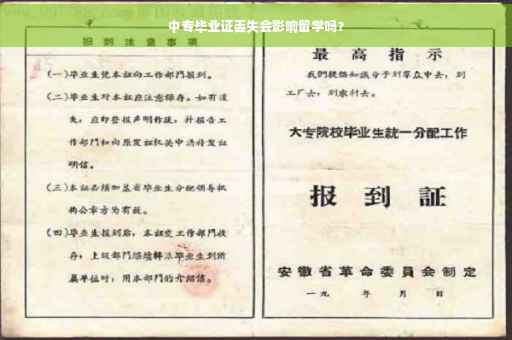 中专毕业证丢失会影响留学吗？
报到注意事项
(一)毕业生凭本证向工作部门报到。
(二)毕业生对本证应注意保存。如有遗
失，应即登报声明作废，并报告工
作部门和向原发证机关申请补发证
明信。
(三)本证必须加盖省毕业生分配领导机
构公章方为有效。
(四)毕业生报到后，本证交工作部门收
存；上级部门继续转派毕业生到所
属单位时，用本部门的介绍信。
最高指示
我们提倡知识分子到群众中去，到
工厂去，到农村去。
大专院校毕业生統一分配工作
报到証
安徽省革命委員会制定
一九 年 月 日